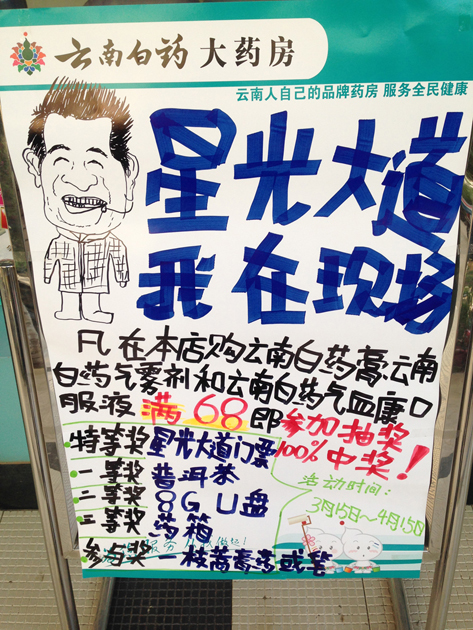 云南白药大药房
云南人自己的品牌药房 服务全民健康
星光大道
我在现场
凡在本店购云南白药膏云南
白药气雾剂和云南白药气血康口
服液 满68即参加抽奖
100%中奖!
特等奖 星光大道门票
一等奖 普洱茶
二等奖 8G U盘
三等奖 药箱
参与奖 一枝
或笔
活动时间:
3月15日~4月15日
服务